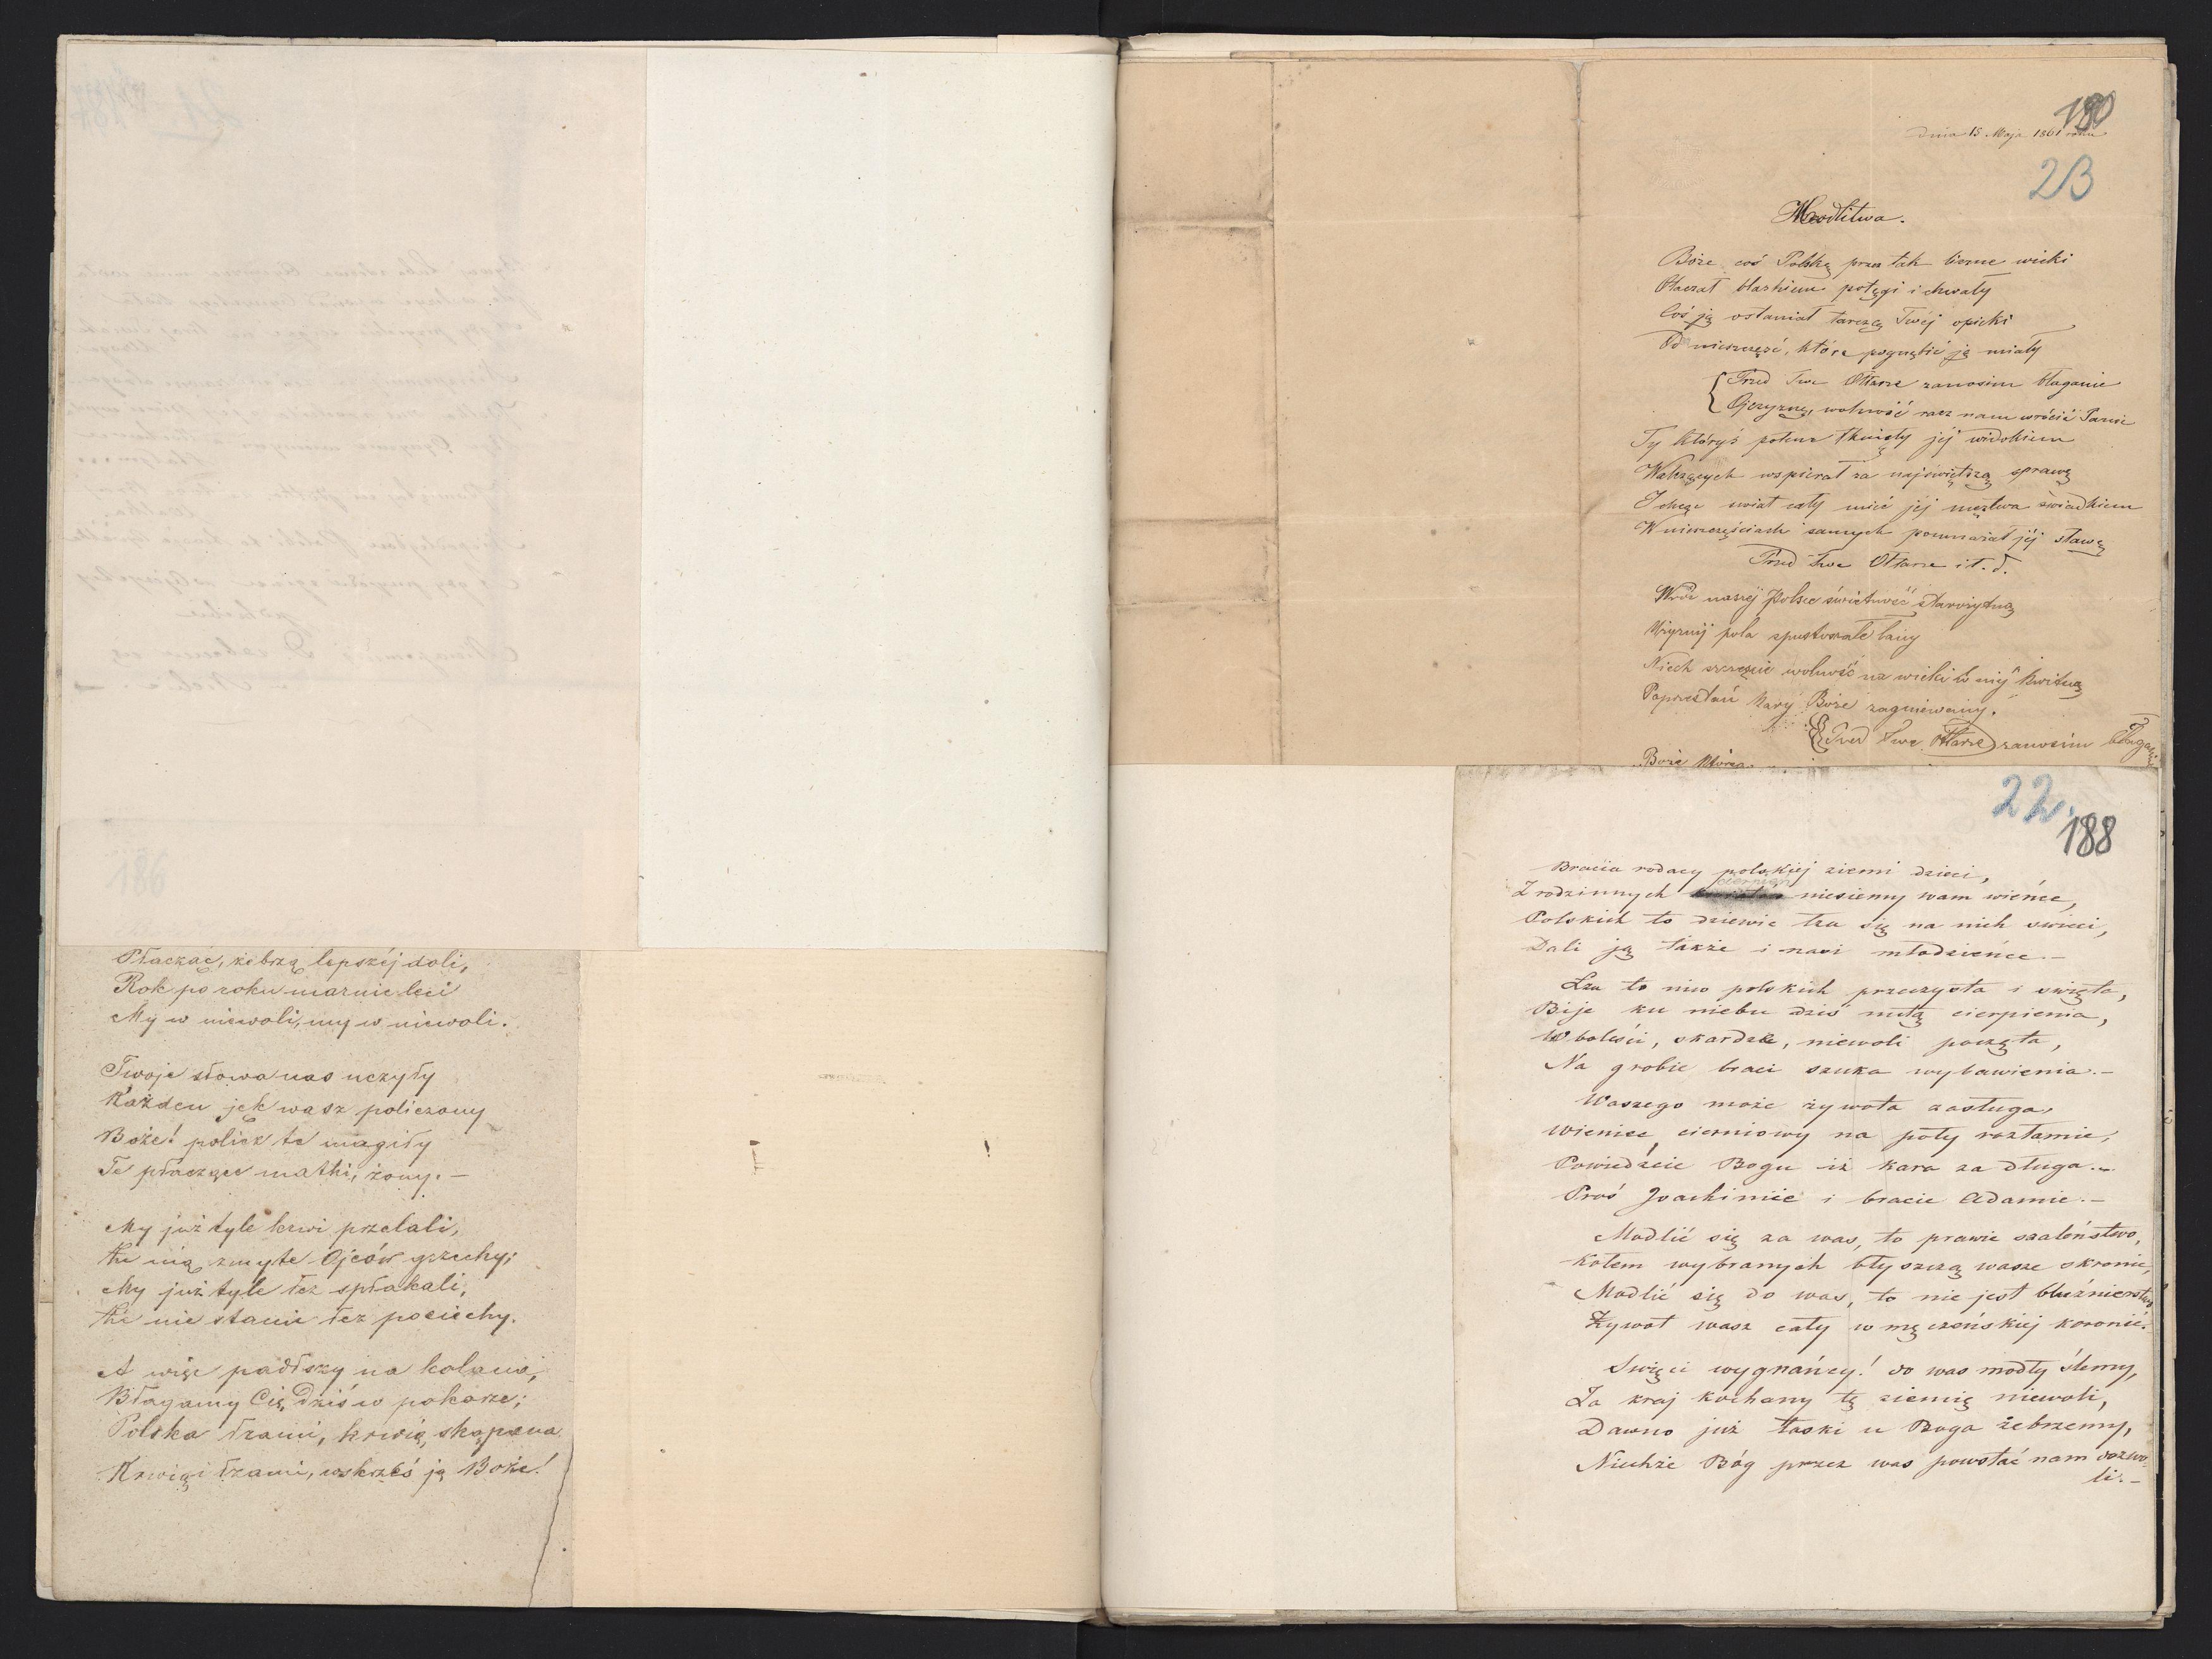 Płacząc, żebrzą lepszéj doli,
Rok po roku marnie leci
My w niewoli, my w niewoli.
Twoje słowa nas uczyły
Każden jęk wasz policzony
Boże! policz te mogiły
Te płaczące matki, żony. –
My już tyle krwi przelali,
Że nią zmyte Ojców grzechy;
My już tyle łez spłakali,
Że nie stanie łez pociechy.
A więc padłszy na kolana,
Błagamy Cię dziś w pokorze;
Polska łzami, krwią skąpana
Krwią i łzami, wskrześ ją Boże!
180
dnia 15 Maja 1861 roku
23
Modlitwa.
Boże coś Polskę przez tak liczne wieki
Otaczał blaskiem potęgi i chwały
Coś ją osłaniał tarczą Twéj opieki
Od nieszczęść, które pognębić ją miały
Przed Twe Ołtarze zanosim błaganie
Ojczyznę, wolność racz nam wrócić Panie
Ty któryś potem tknięty jéj widokiem
Walczących wspierał za najświętszą sprawę
I chcąc świat cały mieć jéj męztwa świadkiem
W nieszczęściach samych pomnażał jéj sławę
Przed Twe Ołtarze i t. d.
Wróć naszéj Polsce świetność starożytną
Użyźnij pola spustoszałe łany
Niech szczęście wolność na wieki w niéj kwitną
Poprzestań kary Boże zagniewany.
Przed Twe Ołtarze zanosim błaganie
Boże którego
22.
188
Bracia rodacy polskiej ziemi dzieci,
Z rodzinnych cierni niesiemy wam wieńce,
Polskich to dziewic łza się na nich świeci,
Dali ją także i nasi młodzieńce. –
Łza to niw polskich przeczysta i święta,
Bije ku niebu dziś nutą cierpienia,
W boleści, skardze, niewoli poczęta,
Na grobie braci szuka wybawienia. –
Waszego może żywota zasługa,
Wieniec cierniowy na poły rozłamie,
Powiedzcie Bogu iż kara za długa. –
Proś Joachimie i bracie Adamie. –
Modlić się za was, to prawie szaleństwo,
Kołem wybranych błyszczą wasze skronie,
Modlić się do was, to nie jest bluźnierstwo
Żywot wasz cały w męczeńskiej koronie.
Święci wygnańcy! do was modły ślemy,
Za kraj kochany tę ziemię niewoli,
Dawno już łaski u Boga żebrzemy,
Niechże Bóg przez was powstać nam dozwo-
li. –